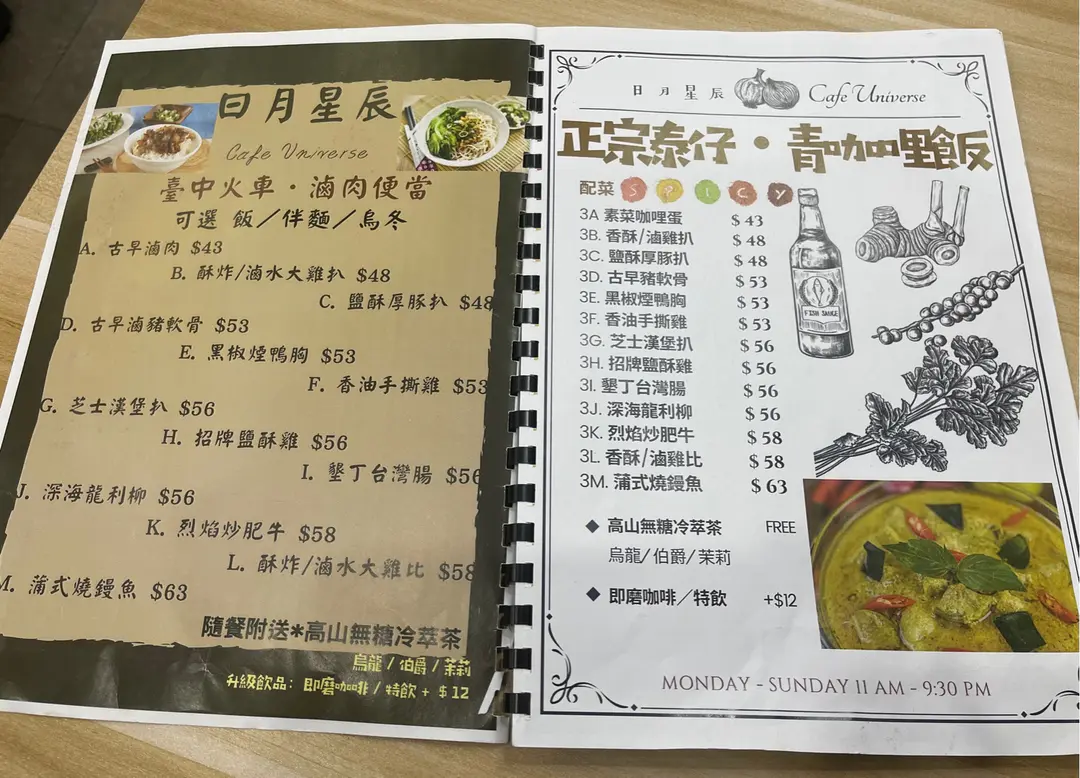 日月星辰
Cafe Universe
臺中火車·滷肉便當
可選 飯／伴麵／烏冬
A. 古早滷肉 $43
B. 酥炸/滷水大雞扒 $48
C. 鹽酥厚豚扒 $48
D. 古早滷豬軟骨 $53
E. 黑椒煙鴨胸 $53
F. 香油手撕雞 $53
G. 芝士漢堡扒 $56
H. 招牌鹽酥雞 $56
I. 墾丁台灣腸 $56
J. 深海龍利柳 $56
K. 烈焰炒肥牛 $58
L. 酥炸/滷水大雞比 $58
M. 蒲式燒鰻魚 $63
隨餐附送*高山無糖冷萃茶
烏龍 / 伯爵 / 茉莉
升級飲品：即磨咖啡 / 特飲 + $12
日月星辰 Cafe Universe
正宗泰仔·青咖喱飯
配菜 SPICY
3A 素菜咖哩蛋 $43
3B. 香酥/滷雞扒 $48
3C. 鹽酥厚豚扒 $48
3D. 古早豬軟骨 $53
3E. 黑椒煙鴨胸 $53
3F. 香油手撕雞 $53
3G. 芝士漢堡扒 $56
3H. 招牌鹽酥雞 $56
3I. 墾丁台灣腸 $56
3J. 深海龍利柳 $56
3K. 烈焰炒肥牛 $58
3L. 香酥/滷雞比 $58
3M. 蒲式燒鰻魚 $63
FISH SAUCE
◆ 高山無糖冷萃茶 FREE
烏龍/伯爵/茉莉
◆ 即磨咖啡／特飲 +$12
MONDAY - SUNDAY 11 AM - 9:30 PM